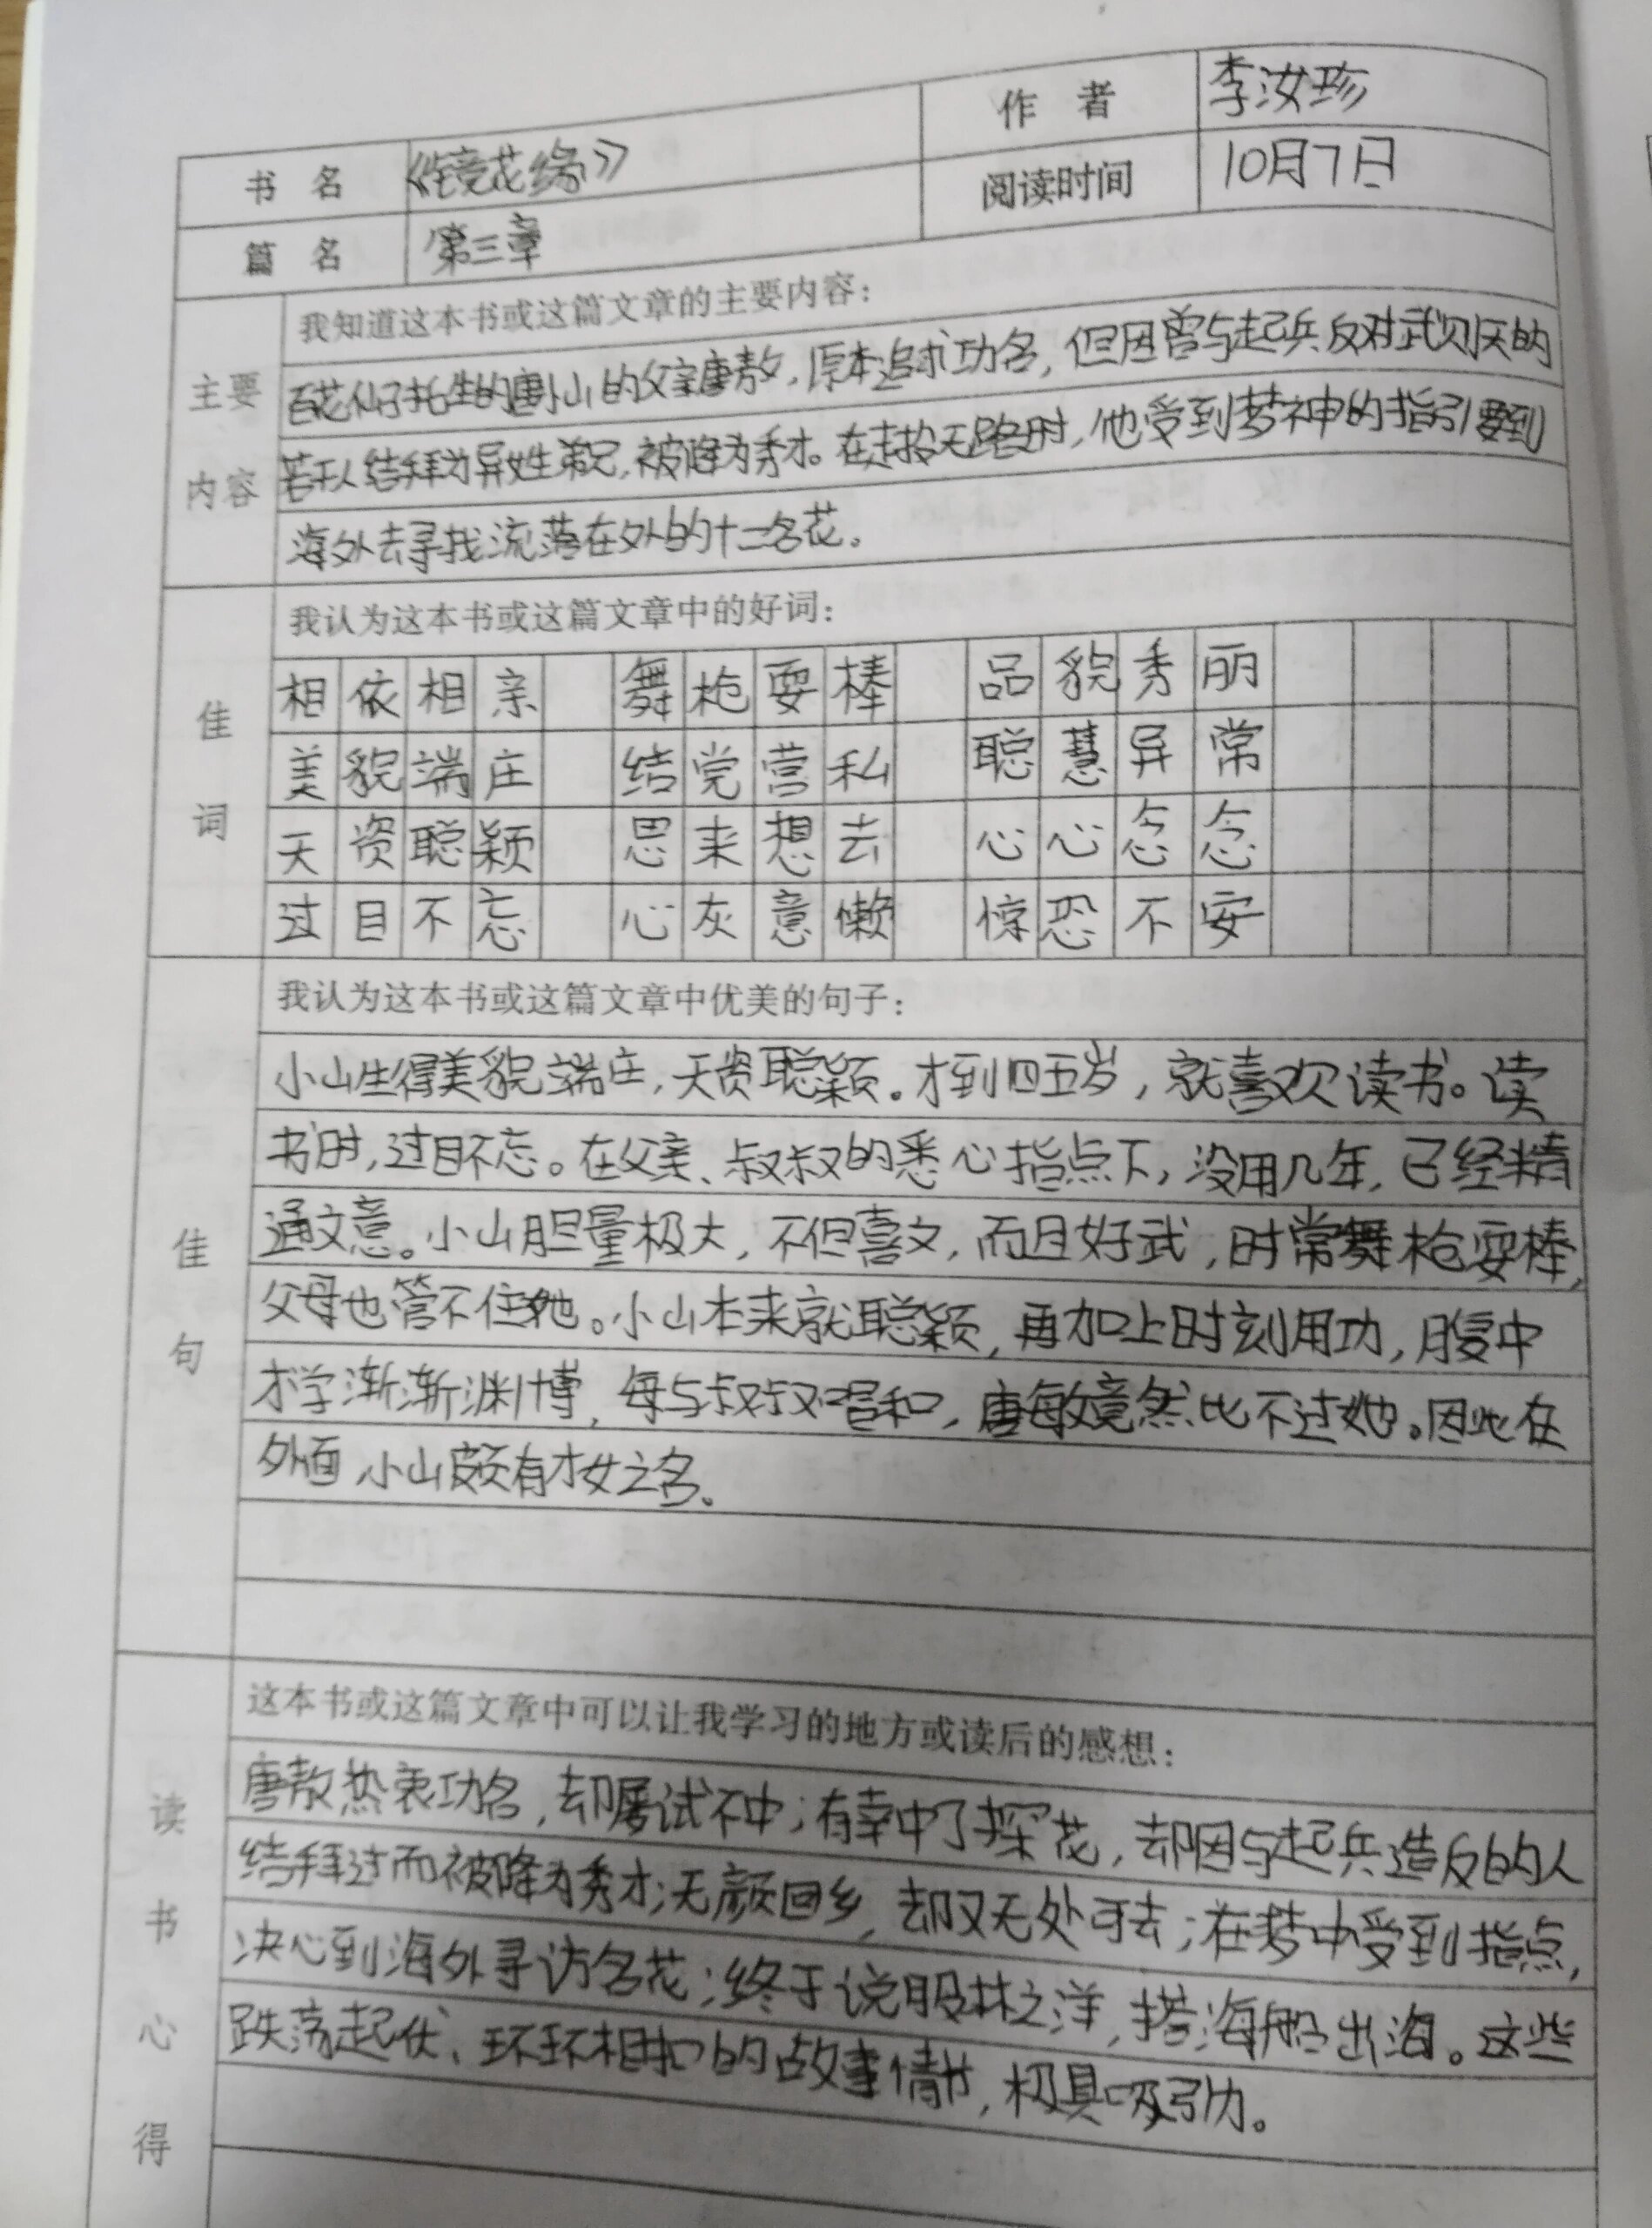 书 名 《镜花缘》 作 者 李汝珍
篇 名 第三章 阅读时间 10月7日
主要内容
我知道这本书或这篇文章的主要内容：
百花仙子托生的唐小山的父亲唐敖，原本追求功名，但因曾与起兵反对武则天的
若干人结拜为异姓弟兄，被降为秀才。在走投无路时，他受到梦神的指引要到
海外去寻找流落在外的十二名花。
佳词
我认为这本书或这篇文章中的好词：
相依相亲 舞枪耍棒 品貌秀丽
美貌端庄 结党营私 聪慧异常
天资聪颖 思来想去 心心念念
过目不忘 心灰意懒 惊恐不安
佳句
我认为这本书或这篇文章中优美的句子：
小山生得美貌端庄，天资聪颖。才到四五岁，就喜欢读书。读
书时，过目不忘。在父亲、叔叔的悉心指点下，没用几年，已经精
通文意。小山胆量极大，不但喜文，而且好武，时常舞枪耍棒，
父母也管不住她。小山本来就聪颖，再加上时刻用功，腹中
才学渐渐渊博，每与叔叔唱和，唐敏竟然比不过她。因此在
外面，小山颇有才女之名。
读书心得
这本书或这篇文章中可以让我学习的地方或读后的感想：
唐敖热衷功名，却屡试不中；有幸中了探花，却因与起兵造反的人
结拜过而被降为秀才；无颜回乡，却又无处可去；在梦中受到指点，
决心到海外寻访名花；终于说服林之洋，搭海船出海。这些
跌荡起伏、环环相扣的故事情节，极具吸引力。